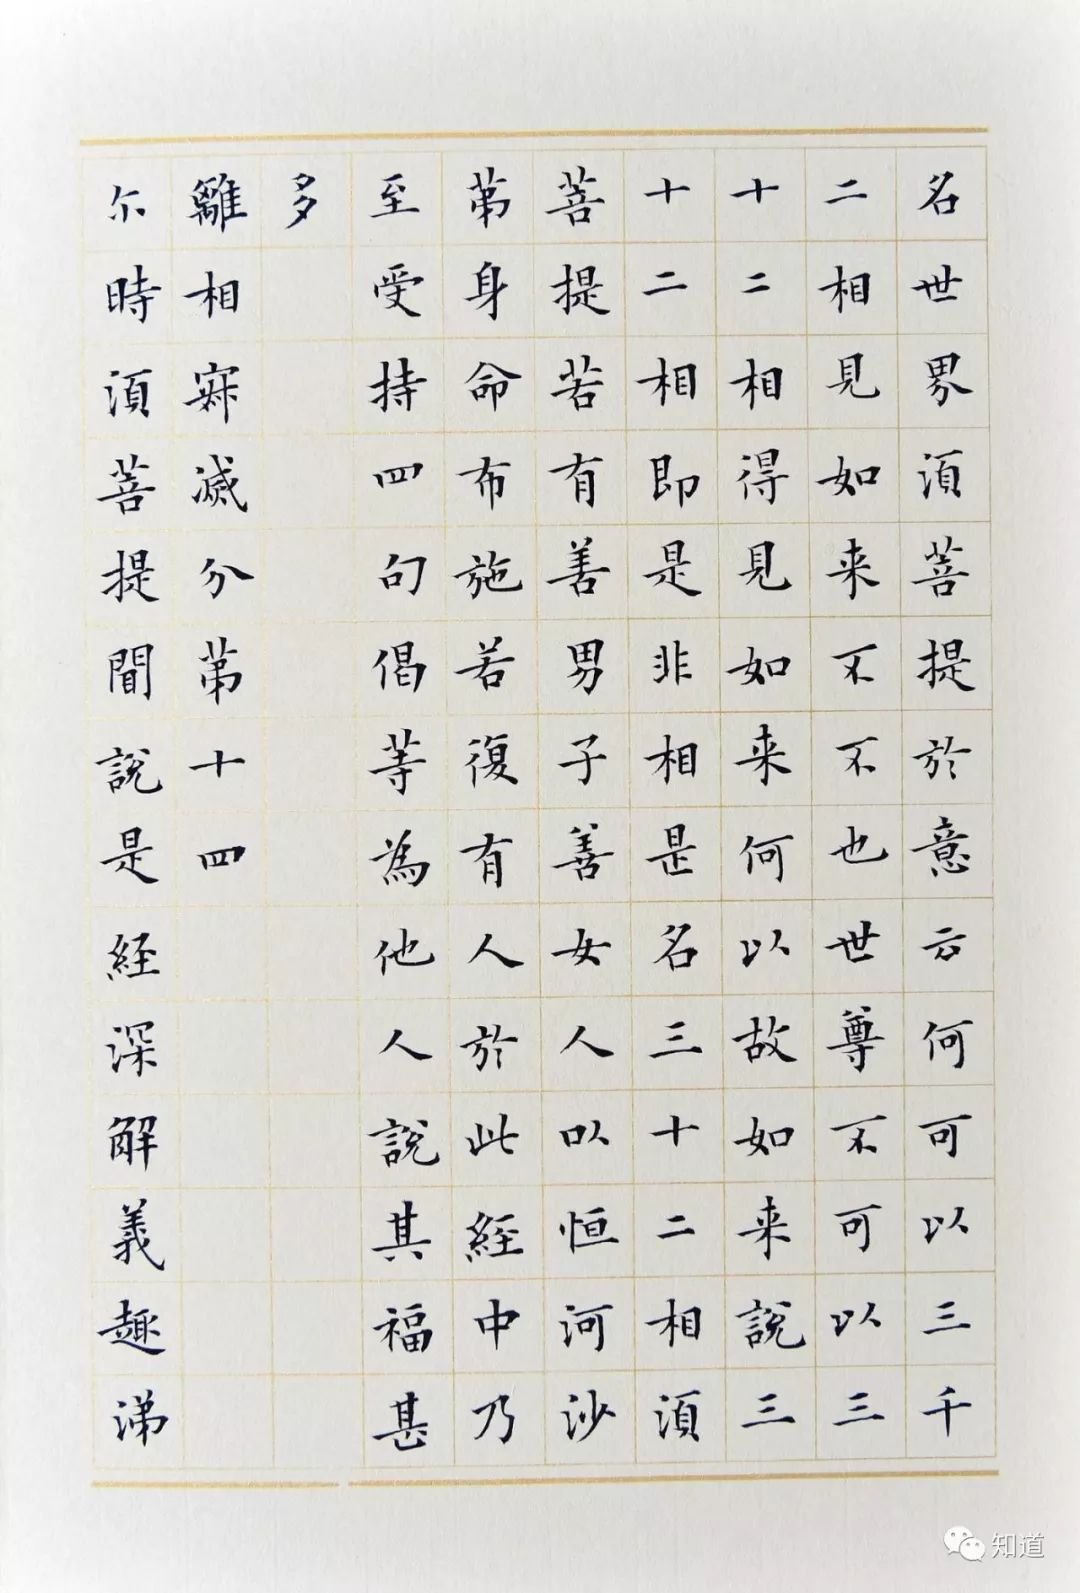 名世界湏菩提於意云何可以三千
二相見如来不不也世尊不可以三
十二相得見如来何以故如来說三
十二相即是非相是名三十二相湏
菩提若有善男子善女人以恒河沙
苐身命布施若復有人於此經中乃
至受持四句偈等為他人說其福甚
多
離相寂滅分苐十四
尒時湏菩提聞說是經深解義趣涕
知道